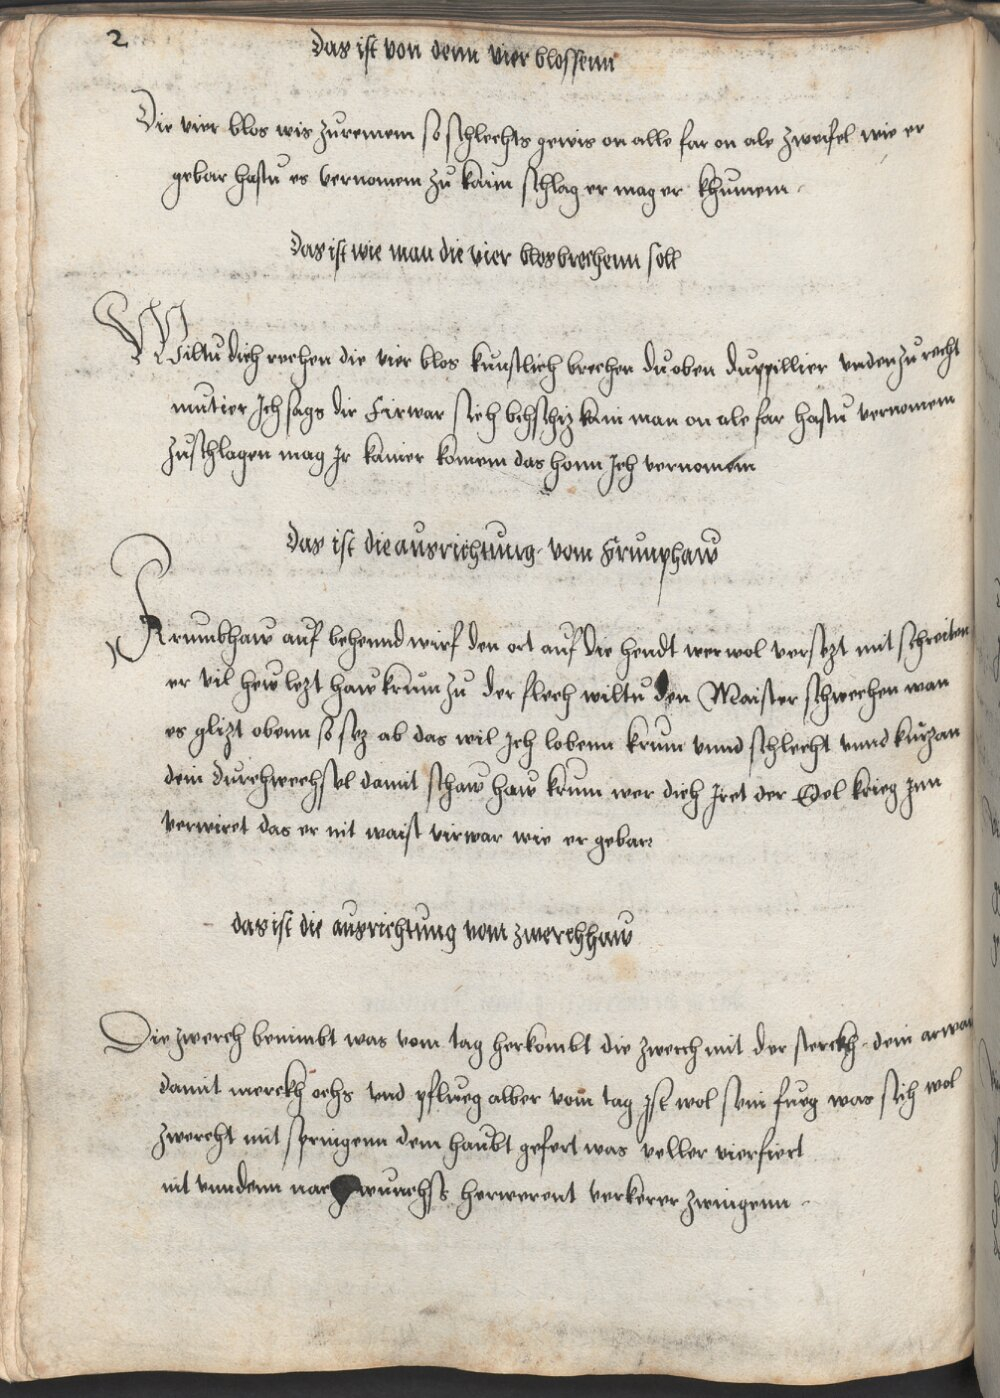 2
Das ist von denn vier blossenn
Die vier blos wis zuremem so schlechts gewis on alle far on ale zweifel wie er
gebar hastu es vernomem zu kaim schlag er mag er khumem
Das ist wie man die vier blos brechenn soll
Wiltu dich rechen die vier blos kunstlich brechen du oben duppillier unden zu recht
mutier Jch sags dir Firwar sich bschiz kain man on ale far hastu vernomem
zu schlagen mag Jr kainer komem das honn Jch vernomem
Das ist die ausrichtung vom Krumphaw
Krumbhaw auf behennd wirf den ort auf die hendt wer wol versezt mit schreiten
er vil hew lezt haw krum zu der flech wiltu den Maister schwechen wan
es glizt obenn so sez ab das wil Jch lobenn krum unnd schlecht unnd kurz an
dein durchwechsel damit schaw haw krum wer dich Jret der Edel krieg Jnn
verwiret das er nit waist virwar wie er gebar
das ist die ausrichtung vom zwerchhaw
Die zwerch benimbt was vom tag herkombt die zwerch mit der sterckh dein arwait
damit merckh ochs und pflueg alber vom tag Jst wol sein fueg was sich wol
zwercht mit springenn dem haubt gefert was veller vierfiert
nit unndenn nach wunschs herwerent verkerer zwingenn